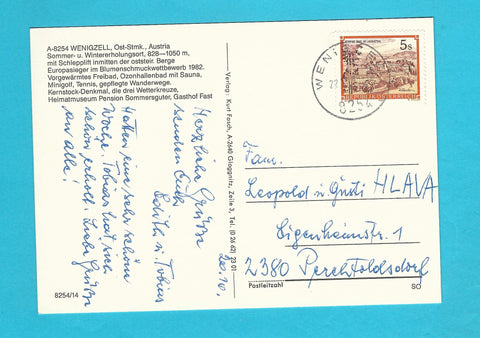 A-8254 WENIGZELL, Ost-Stmk., Austria
Sommer- u. Wintererholungsort, 828—1050 m,
mit Schlepplift inmitten der oststeir. Berge
Europasieger im Blumenschmuckwettbewerb 1982.
Vorgewärmtes Freibad, Ozonhallenbad mit Sauna,
Minigolf, Tennis, gepflegte Wanderwege.
Kernstock-Denkmal, die drei Wetterkreuze,
Heimatmuseum Pension Sommersguter, Gasthof Fast
20.10.
Herzliche Grüße
senden Euch
Edith u. Tobias
Hatten eine sehr schöne
Woche. Tobias hat sich
schön erholt. Liebe Grüße
an alle!
8254/14
Verlag: Kurt Fasch, A-2640 Gloggnitz, Zeile 3, Tel. (0 26 62) 23 01
5s
REPUBLIK ÖSTERREICH
WENI
8254
Fam.
Leopold u. Gusti HLAVA
Eigenheimstr. 1
2380 Perchtoldsdorf
Postleitzahl
SO